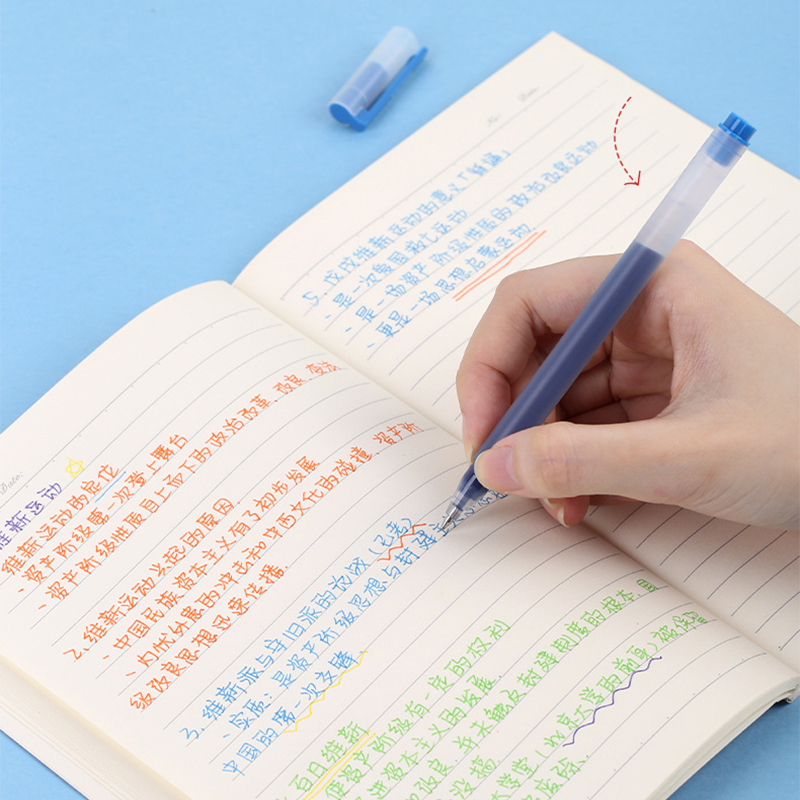 Date:
维新运动
维新运动的定位
、资产阶级第一次登上舞台
、资产阶级性质自上而下的政治改革,改良,变法
2、维新运动兴起的原因.
、中国民族资本主义有了初步发展
、外国的冲击和中西文化的碰撞,资产阶
级改良思想迅速传播.
3、维新派与守旧派的论战(记者)
、实质:是资产阶级思想与封建
中国的第一次交锋
百日维新
使资产阶级有一定的权利
进资本主义的发展.
改良,并未触及封建制度的根本,且
没搞
大学堂(北京大学的前身)被保留
废除.
No.
Date.
5、戊戌维新运动的意义「背诵」
、是一次爱国救亡运动
、是一场资产阶级性质的政治改良运动
、更是一场思想启蒙运动